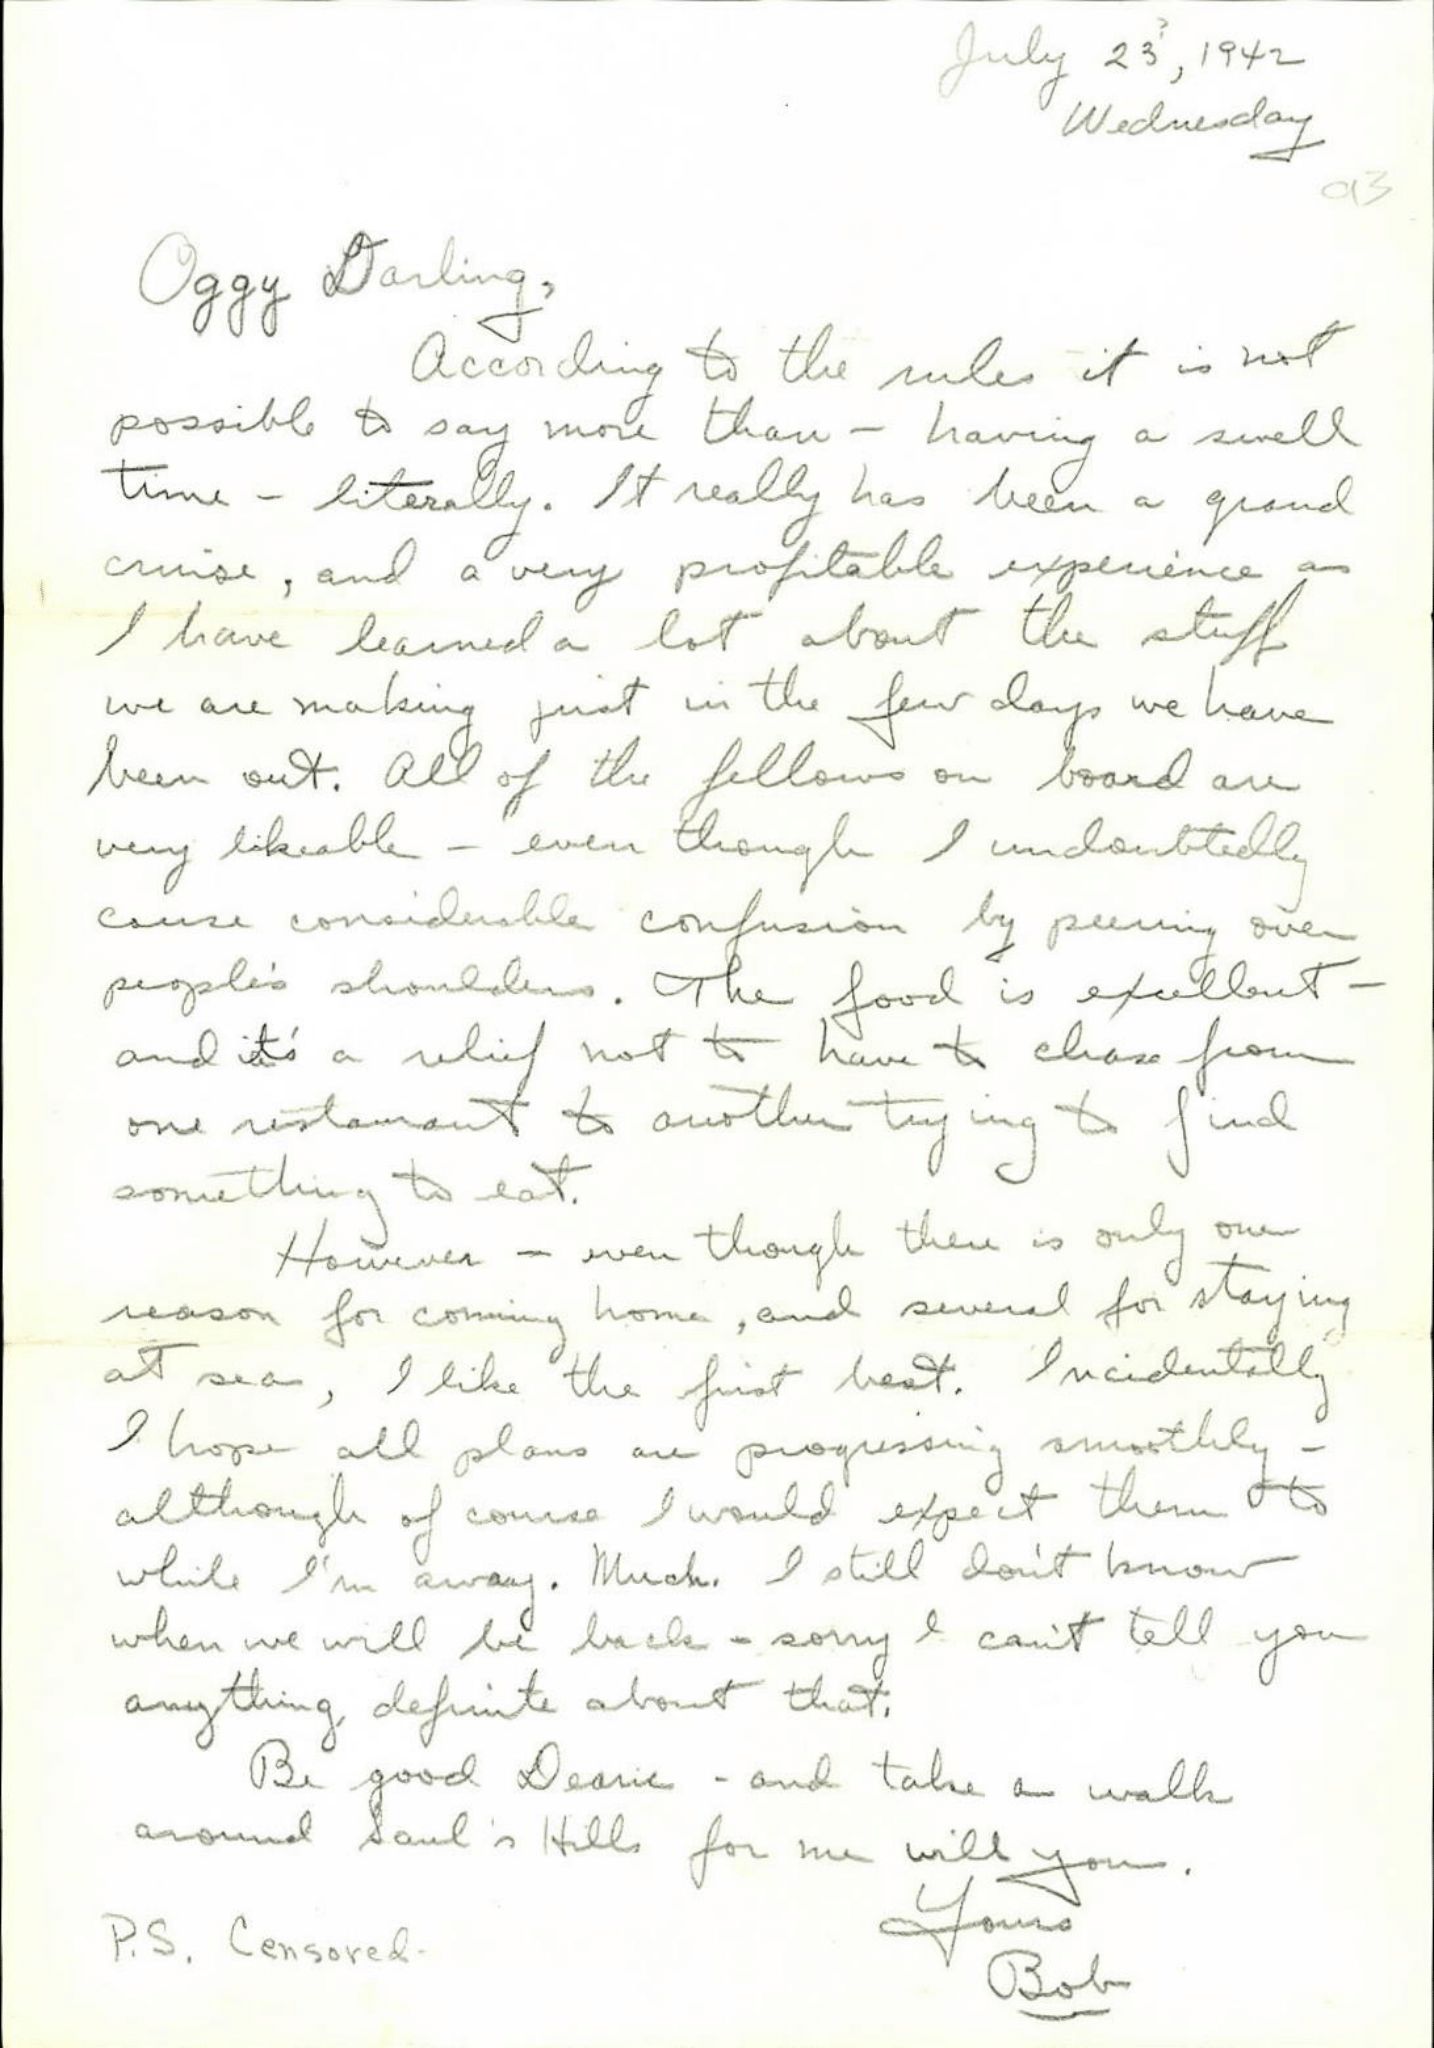 July 23?, 1942
Wednesday
Oggy Darling,
According to the rules it is not
possible to say more than – having a swell
time – literally. It really has been a grand
cruise, and a very profitable experience as
I have learned a lot about the stuff
we are making just in the few days we have
been out. All of the fellows on board are
very likeable – even though I undoubtedly
cause considerable confusion by peering over
people's shoulders. The food is excellent –
and it's a relief not to have to chase from
one restaurant to another trying to find
something to eat.
However – even though there is only one
reason for coming home, and several for staying
at sea, I like the first best. Incidentally
I hope all plans are progressing smoothly –
although of course I would expect them to
while I'm away. Much. I still don't know
when we will be back – sorry I can't tell you
anything definite about that.
Be good Dearie – and take a walk
around Saul's Hills for me will you.
Yours
Bob
P.S. Censored.